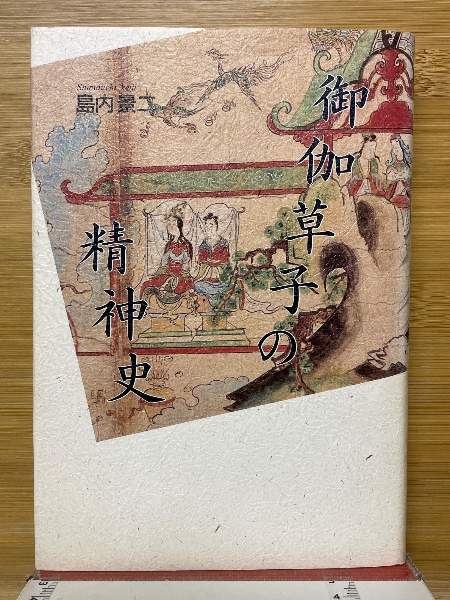 御伽草子の
精神史
Shimauchi Keiji
島内景二
4